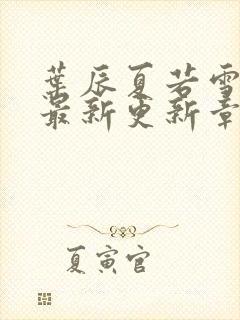 葉辰夏若雪
最新更新章
夏寅官